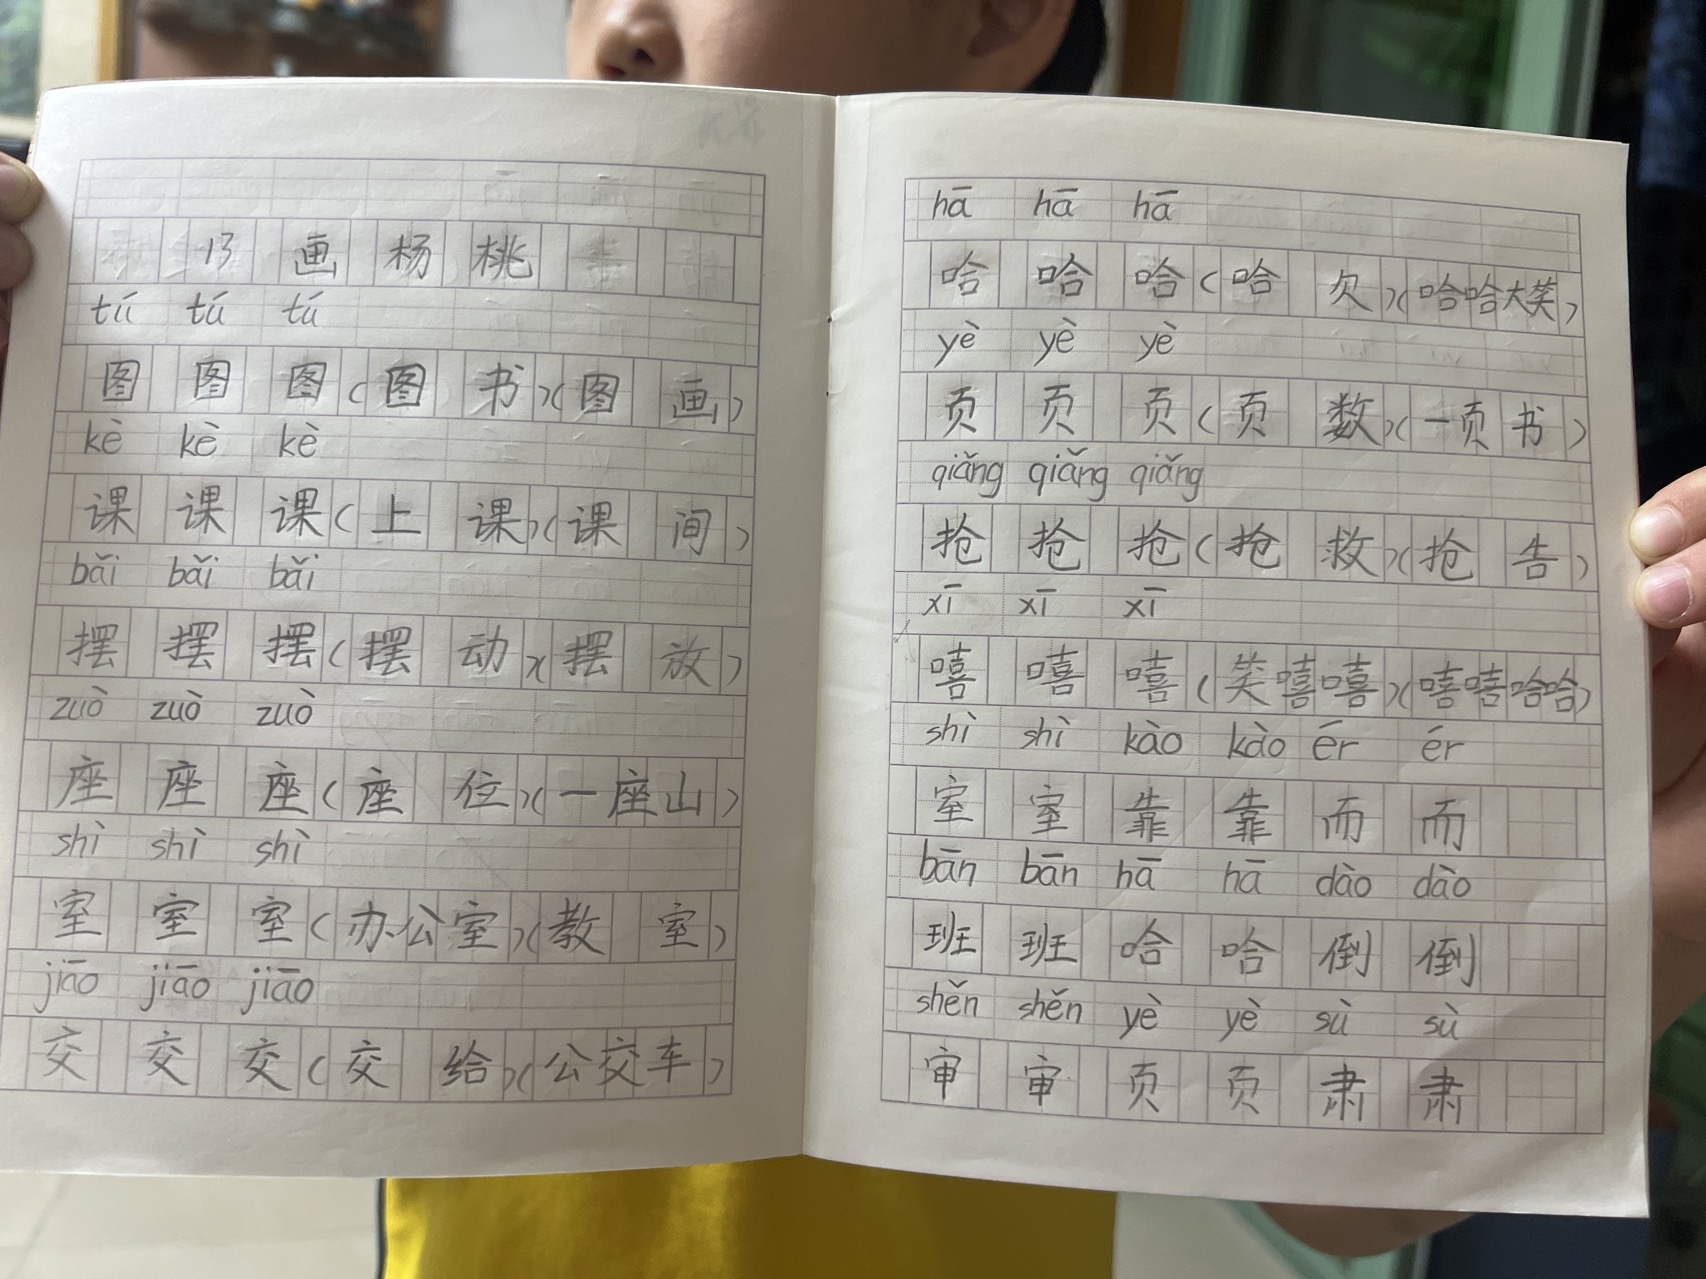 13 画杨桃
tú tú tú
图 图 图(图书)(图画)
kè kè kè
课 课 课(上课)(课间)
bǎi bǎi bǎi
摆 摆 摆(摆动)(摆放)
zuò zuò zuò
座 座 座(座位)(一座山)
shì shì shì
室 室 室(办公室)(教室)
jiāo jiāo jiāo
交 交 交(交给)(公交车)
hā hā hā
哈 哈 哈(哈欠)(哈哈大笑)
yè yè yè
页 页 页(页数)(一页书)
qiǎng qiǎng qiǎng
抢 抢 抢(抢救)(抢告)
xī xī xī
嘻 嘻 嘻(笑嘻嘻)(嘻嘻哈哈)
shì shì kào kào ér ér
室 室 靠 靠 而 而
bān bān hā hā dào dào
班 班 哈 哈 倒 倒
shěn shěn yè yè sù sù
审 审 页 页 肃 肃